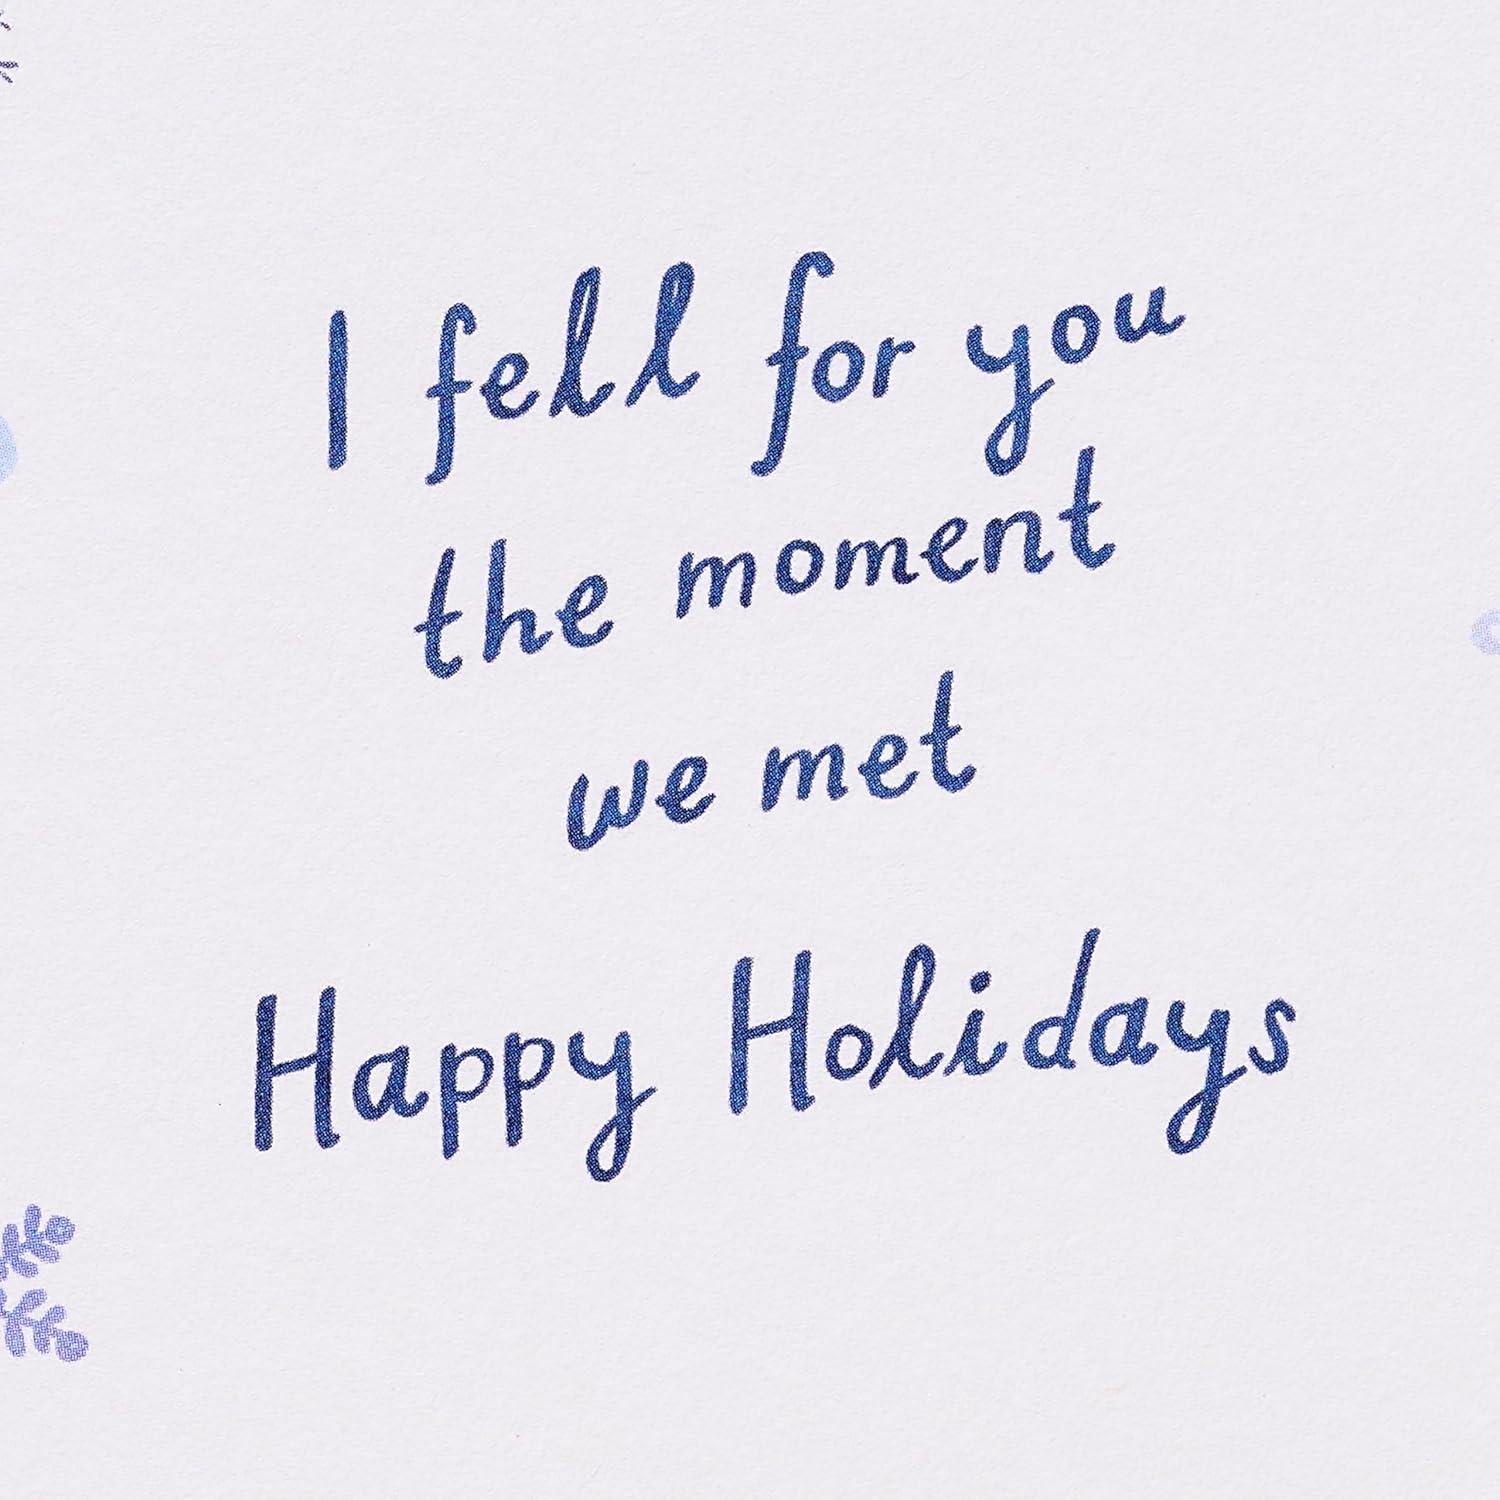 I fell for you
the moment
we met
Happy Holidays